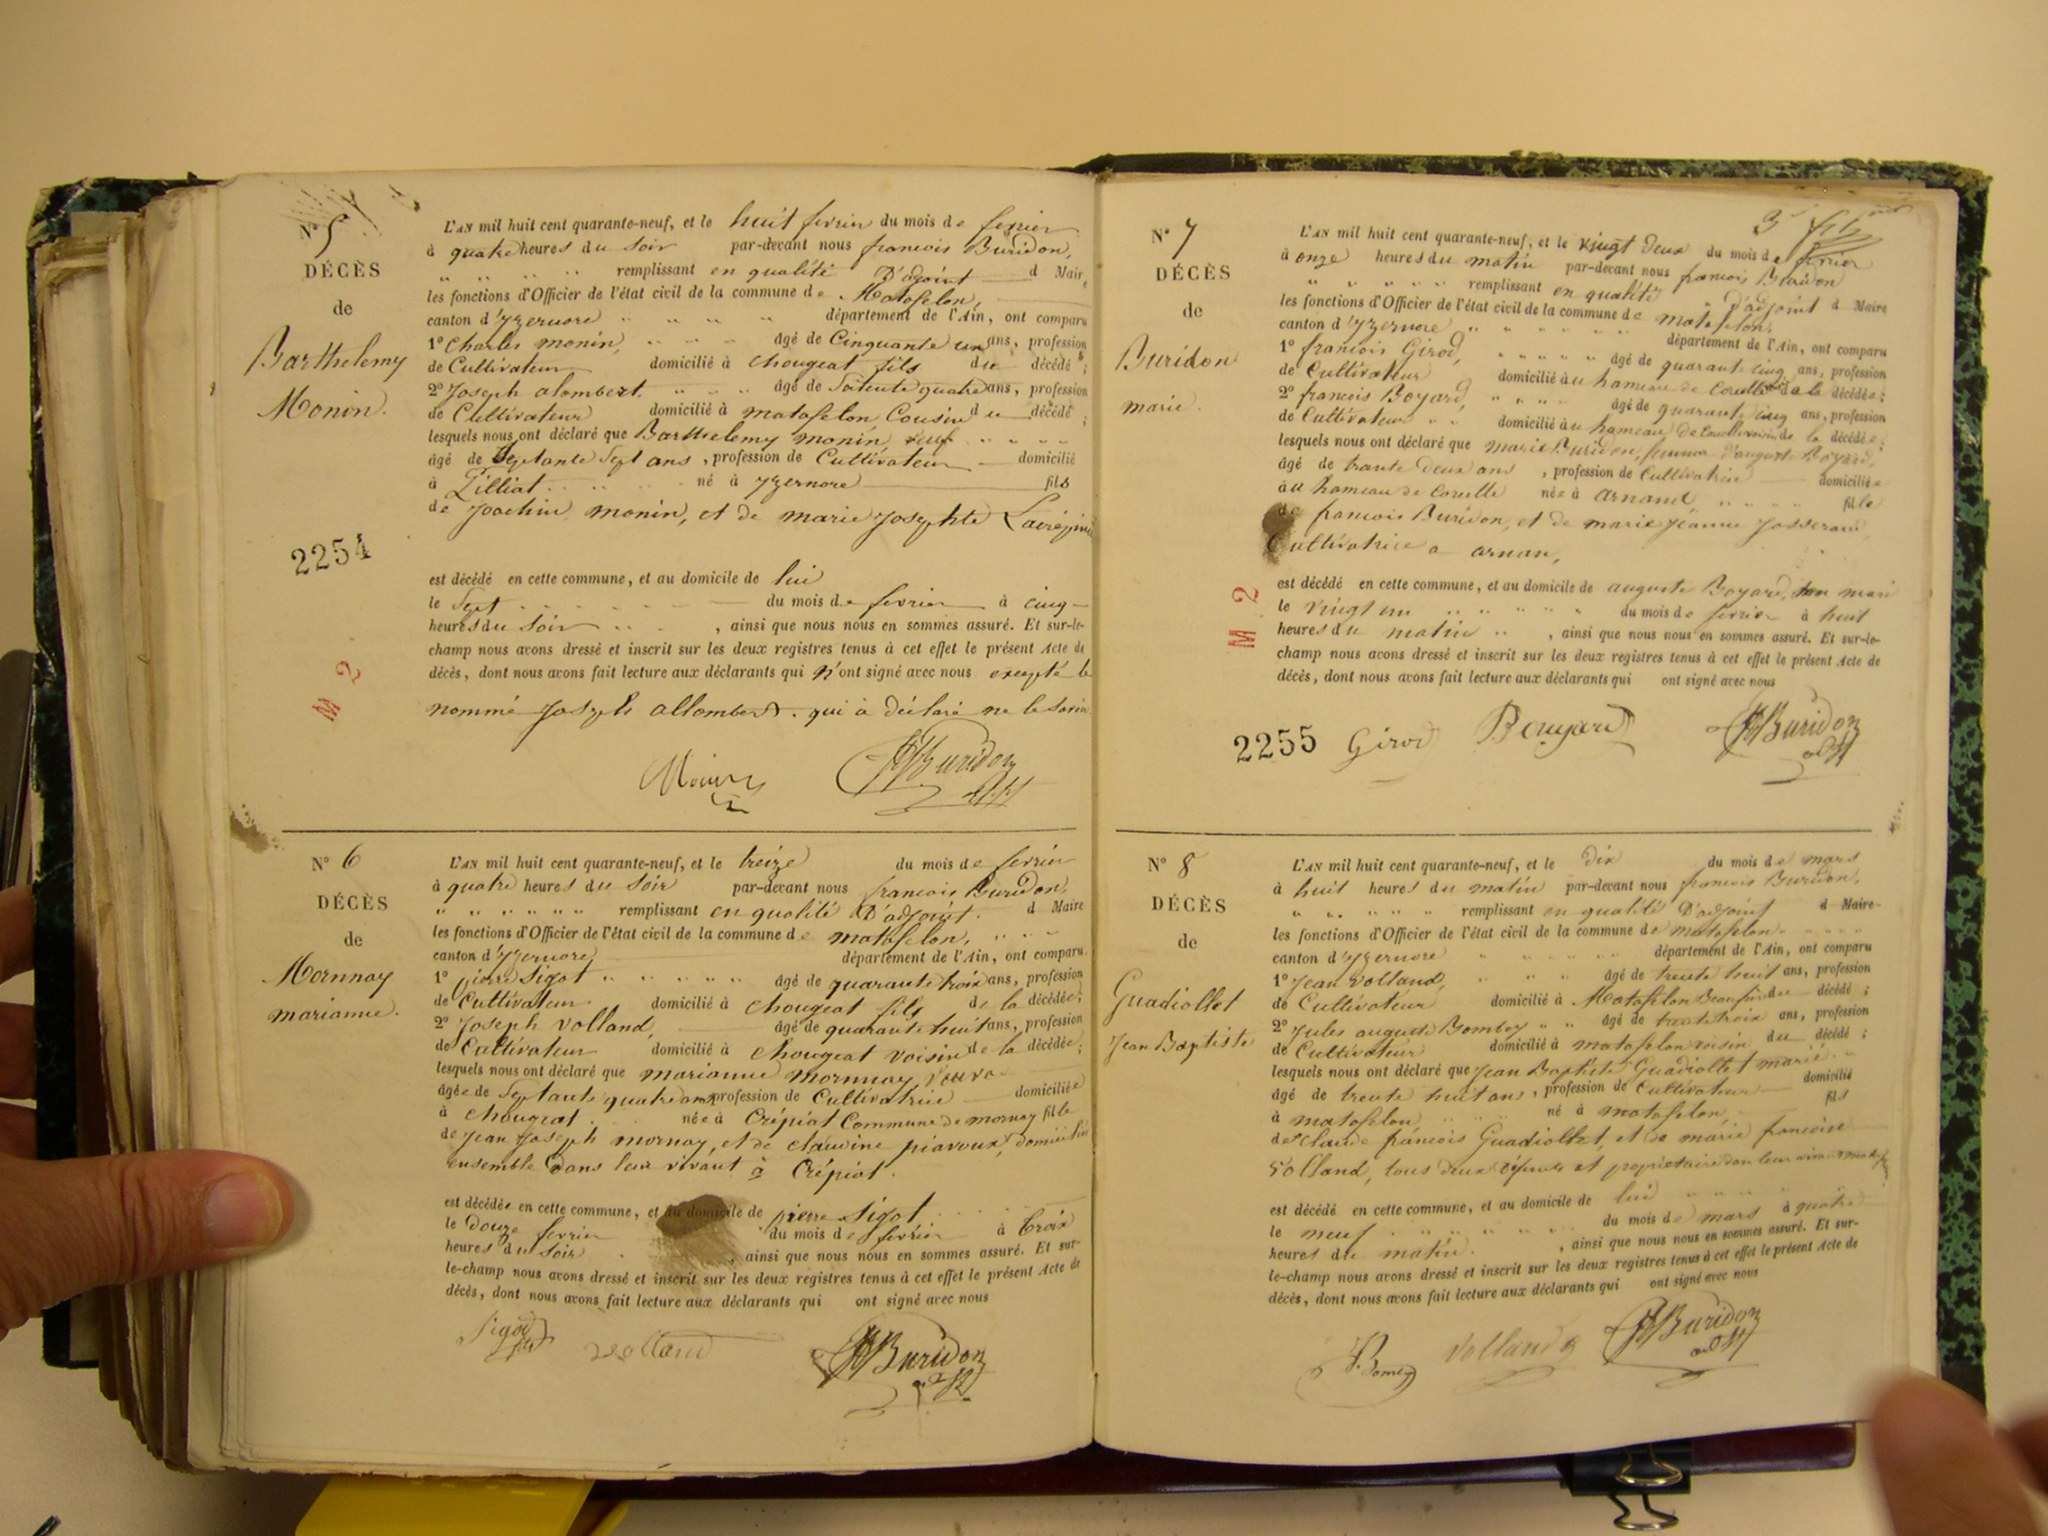 N° 5
DÉCÈS
de
Barthelemy
Monin.
2254
M 2
L'AN mil huit cent quarante-neuf, et le huit fevrier du mois de fevrier
à quatre heures du soir par-devant nous francois Buridon,
" " " " remplissant en qualité D'adjoint d Maire
les fonctions d'Officier de l'état civil de la commune de Matafelon,
canton d'yzernore " " " " département de l'Ain, ont comparu
1° Charles monin, âgé de Cinquante un ans, profession
de Cultivateur domicilié à chougeat fils du décédé ;
2° Joseph alombert âgé de Soixente quatre ans, profession
de Cultivateur domicilié à matafelon Cousin du décédé ;
lesquels nous ont déclaré que Barthelemy monin veuf
âgé de Septante Sept ans, profession de Cultivateur domicilié
à né à yzernore fils
de Joachim monin, et de marie Josephte
est décédé en cette commune, et au domicile de lui
le Sept du mois de fevrier à cinq
heures du soir , ainsi que nous nous en sommes assuré. Et sur-le-
champ nous avons dressé et inscrit sur les deux registres tenus à cet effet le présent Acte de
décès, dont nous avons fait lecture aux déclarants qui n'ont signé avec nous excepté le
nommé Joseph allombert. qui a déclaré ne le savoir
Monin FBuridon adjt
N° 6
DÉCÈS
de
Mornnay
marianne.
L'AN mil huit cent quarante-neuf, et le treize du mois de fevrier
à quatre heures du soir par-devant nous francois Buridon,
" " " " " " remplissant en qualité D'adjoint. d Maire
les fonctions d'Officier de l'état civil de la commune de matafelon,
canton d'yzernore département de l'Ain, ont comparu
1° pierre Sigot " " " " " " âgé de quarante trois ans, profession
de Cultivateur domicilié à chougeat fils de la décédée;
2° Joseph Volland, âgé de quarante huit ans, profession
de Cultivateur domicilié à chougeat voisin de la décédée;
lesquels nous ont déclaré que marianne mornnay veuve
âgée de Septante quatre ans profession de Cultivatrice domiciliée
à chougeat. née à Crépiat Commune de mornay fille
de Jean Joseph mornay, et de claudine piavoux, domicilié
ensemble dans leur vivant à Crépiat.
est décédée en cette commune, et au domicile de pierre Sigot
le douze fevrier du mois de fevrier à trois
heures du soir , ainsi que nous nous en sommes assuré. Et sur-
le-champ nous avons dressé et inscrit sur les deux registres tenus à cet effet le présent Acte de
décès, dont nous avons fait lecture aux déclarants qui ont signé avec nous
Sigod Volland FBuridon adjt
3
N° 7
DÉCÈS
de
Buridon
marie.
M 2
2255
L'AN mil huit cent quarante-neuf, et le vingt deux du mois de fevrier
à onze heures du matin par-devant nous francois Buridon
" " " " " remplissant en qualité D'adjoint d Maire
les fonctions d'Officier de l'état civil de la commune de matafelon,
canton d'yzernore " " " " " " département de l'Ain, ont comparu
1° francois Girod, " " " " " âgé de quarante cinq ans, profession
de Cultivateur domicilié à u hameau de de la décédée;
2° francois Boyard, " " " " âgé de quarante cinq ans, profession
de Cultivateur domicilié à u hameau de voisin de la décédée;
lesquels nous ont déclaré que marie Buridon, femme d'auguste Boyard,
âgé de trante deux ans , profession de Cultivatrice domiciliée
à u hameau de née à arnand fille
de francois Buridon, et de marie Jeanne Josserand,
Cultivatrice a arnan,
est décédé en cette commune, et au domicile de auguste Boyard, son mari
le vingt un " " " " du mois de fevrier à huit
heures du matin " " , ainsi que nous nous en sommes assuré. Et sur-le-
champ nous avons dressé et inscrit sur les deux registres tenus à cet effet le présent Acte de
décès, dont nous avons fait lecture aux déclarants qui ont signé avec nous
Girod Bouyard FBuridon adjt
N° 8
DÉCÈS
de
Guadiollet
Jean Baptiste
L'AN mil huit cent quarante-neuf, et le dix du mois de mars
à huit heures du matin par-devant nous francois Buridon,
" " " " " remplissant en qualité D'adjoint d Maire
les fonctions d'Officier de l'état civil de la commune de matafelon
canton d'yzernore " " " " " département de l'Ain, ont comparu
1° Jean Volland, " " " " âgé de trente huit ans, profession
de Cultivateur domicilié à Matafelon Beaufrère du décédé ;
2° Jules auguste Bombey " " âgé de trente trois ans, profession
de Cultivateur domicilié à matafelon voisin du décédé ;
lesquels nous ont déclaré que Jean Baptiste Guadiollet marié
âgé de trente huit ans, profession de Cultivateur domicilié
à matafelon né à matafelon fils
de Claude francois Guadiollet, et de marie francoise
Volland, tous deux et propriétaire dan leur
est décédé en cette commune, et au domicile de lui
le neuf du mois de mars à quatre
heures du matin. , ainsi que nous nous en sommes assuré. Et sur-
le-champ nous avons dressé et inscrit sur les deux registres tenus à cet effet le présent Acte de
décès, dont nous avons fait lecture aux déclarants qui ont signé avec nous
Volland FBuridon adjt